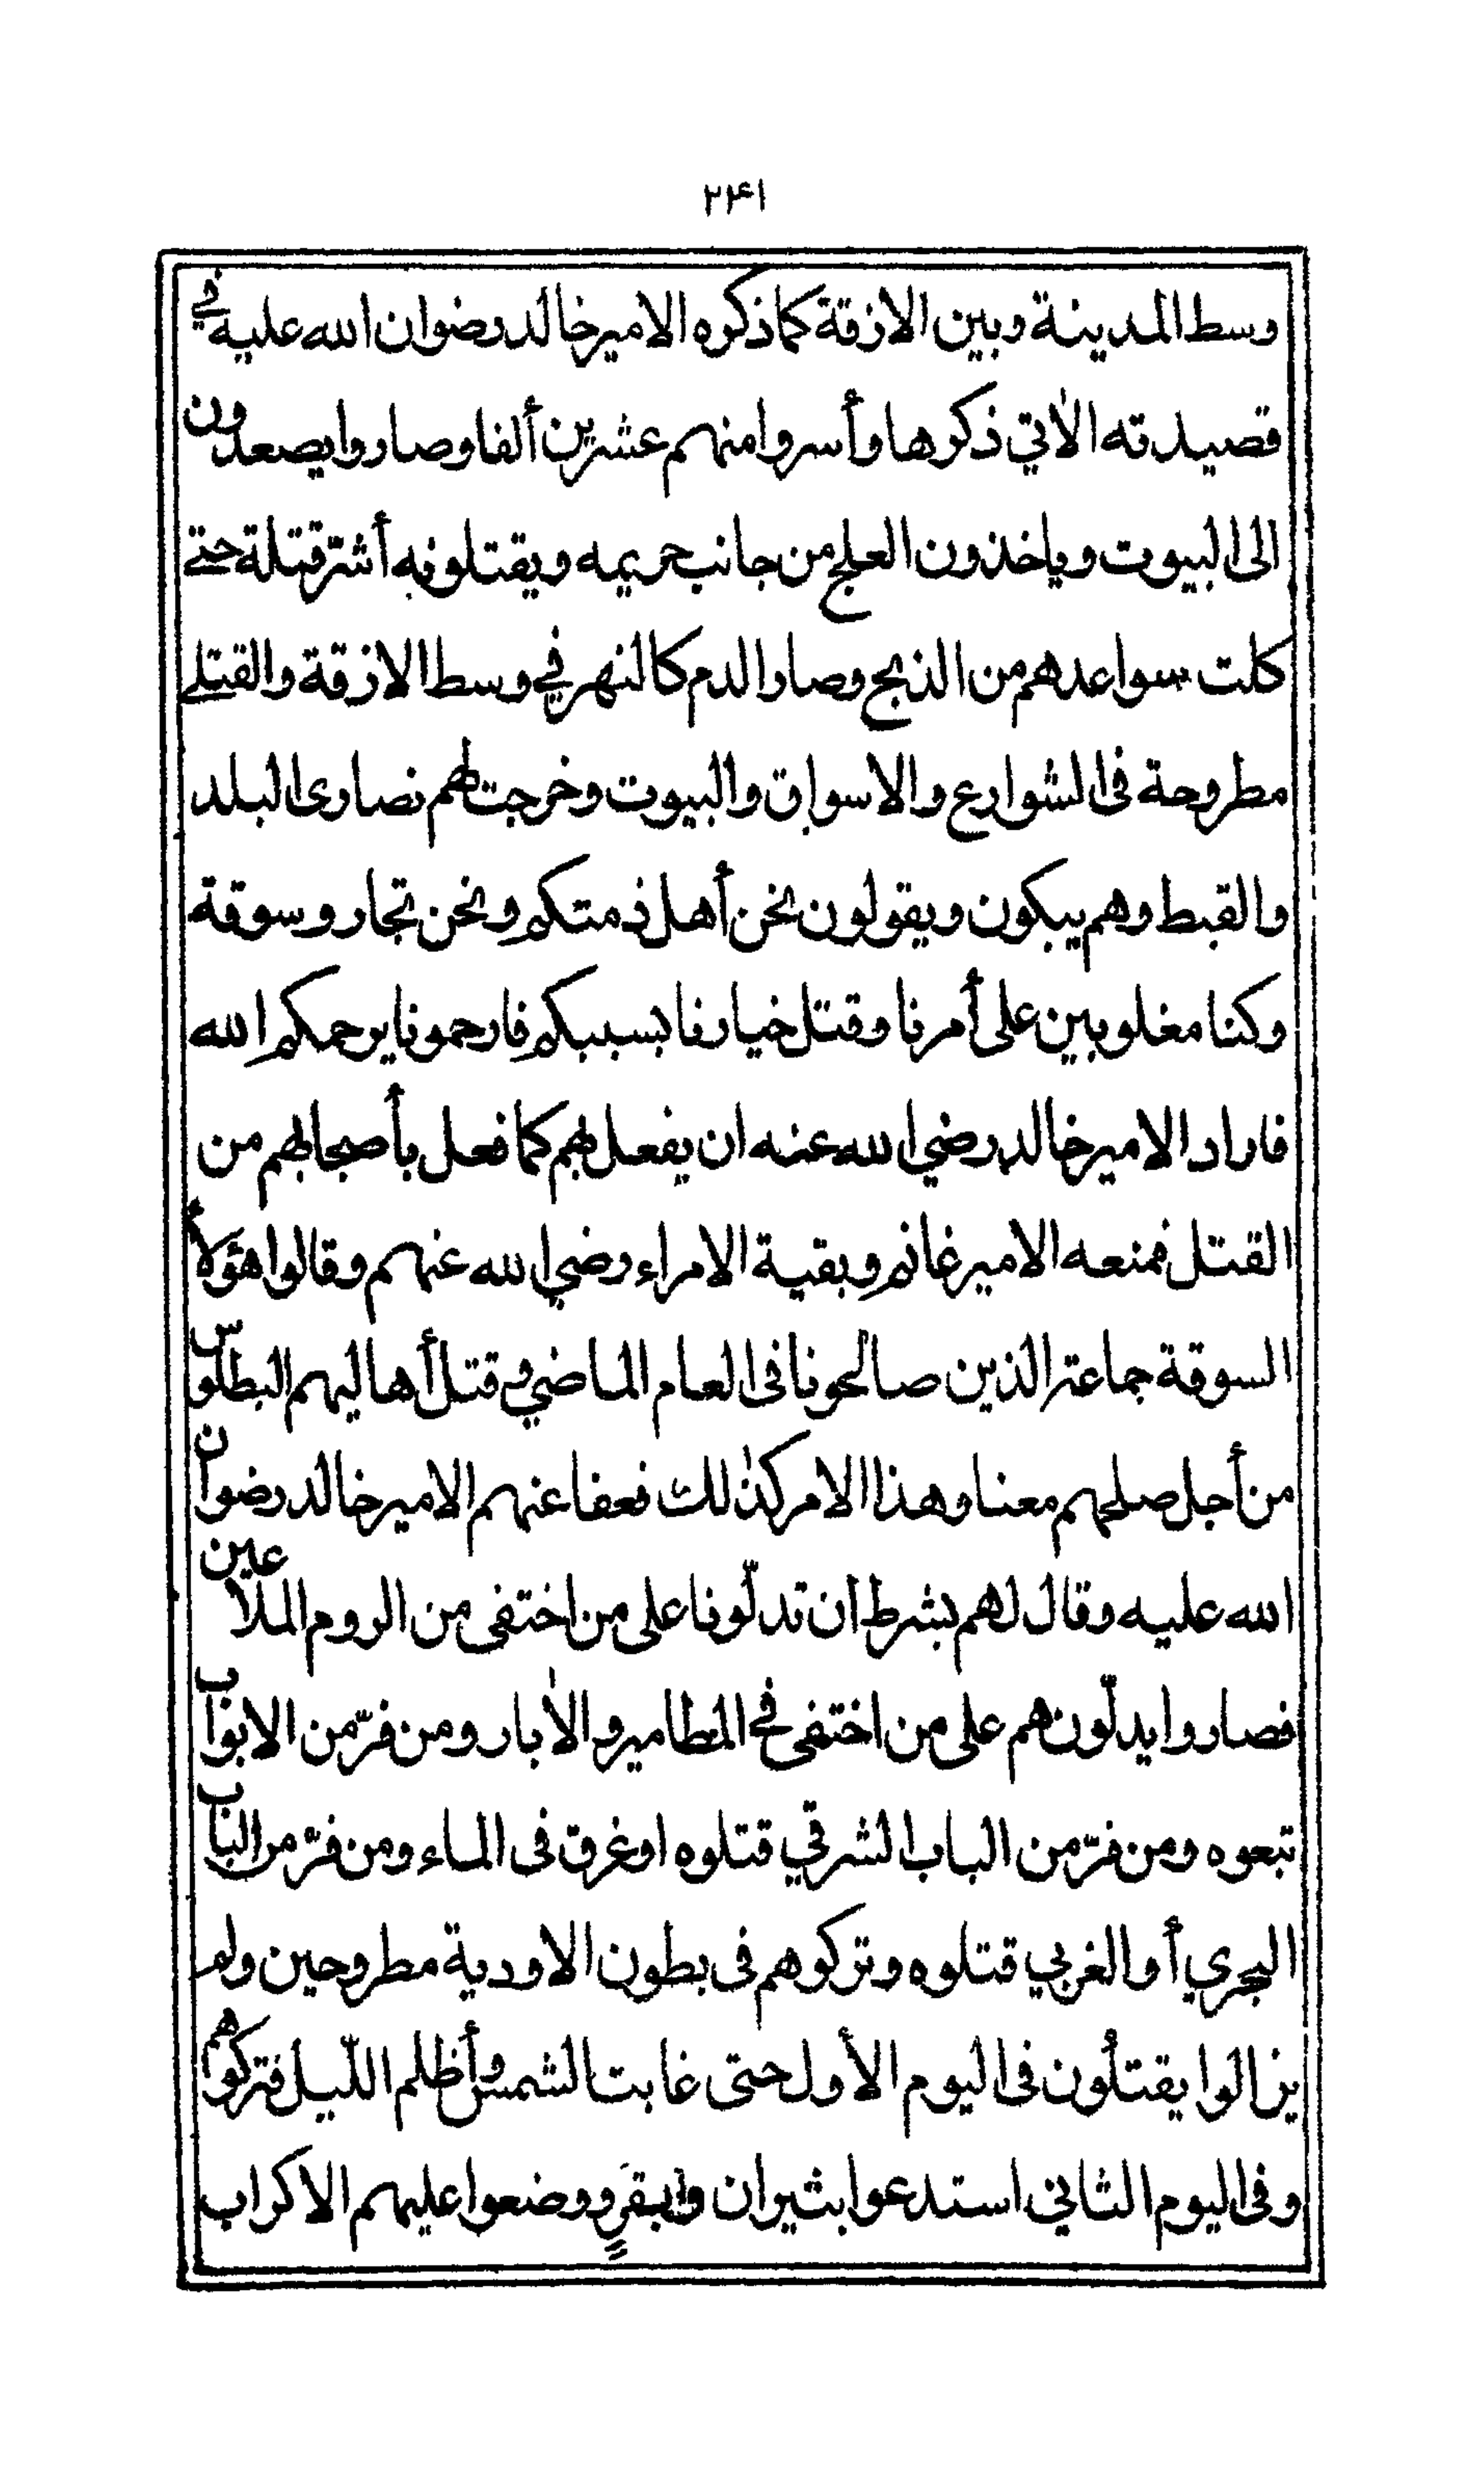 ٢٤١
وسط المدينة وبين الازقة كما ذكره الامير خالد رضوان الله عليه في
قصيدته الاٰتي ذكرها وأسروا منهم عشرين ألفا وصاروا يصعدون
الى البيوت وياخذون العلج من جانب حريمه ويقتلونه أشرّ قتلة حتى
كلت سواعدهم من الذبح وصار الدم كالنهر في وسط الازقة والقتلى
مطروحة فى الشوارع والاسواق والبيوت وخرجت لهم نصارى البلد
والقبط وهم يبكون ويقولون نحن أهل ذمتكم ونحن تجار وسوقة
وكنا مغلوبين على أمرنا وقتل خيارنا بسببكم فارحمونا يرحمكم الله
فاراد الامير خالد رضي الله عنه ان يفعل بهم كما فعل بأصحابهم من
القتل فمنعه الامير غانم وبقية الامراء رضي الله عنهم وقالوا هؤلاء
السوقة جماعة الذين صالحونا فى العام الماضي وقتل أهاليهم البطلوس
من أجل صلحهم معنا وهذا الامر كذٰلك فعفا عنهم الامير خالد رضوان
الله عليه وقال لهم بشرط ان تدلّونا على من اختفى من الروم الملاعين
فصاروا يدلّونهم على من اختفى في المطامير والاٰبار ومن فرّ من الابواب
تبعوه ومن فرّ من الباب الشرقي قتلوه او غرق فى الماء ومن فرّ من الباب
البحري أو الغربي قتلوه وتركوهم فى بطون الاودية مطروحين ولم
يزالوا يقتلُون فى اليوم الأول حتى غابت الشمس وأظلم اللّيل فتركوهم
وفى اليوم الثاني استدعوا بثيران وابقرٍ ووضعوا عليهم الاكراب